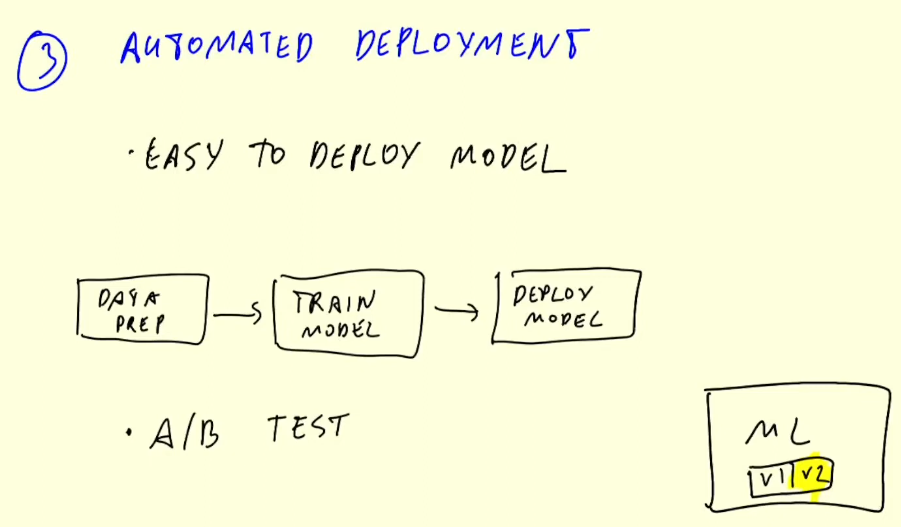 3 AUTOMATED DEPLOYMENT
· EASY TO DEPLOY MODEL
DATA
PREP
TRAIN
MODEL
DEPLOY
MODEL
· A/B TEST
ML
V1 V2